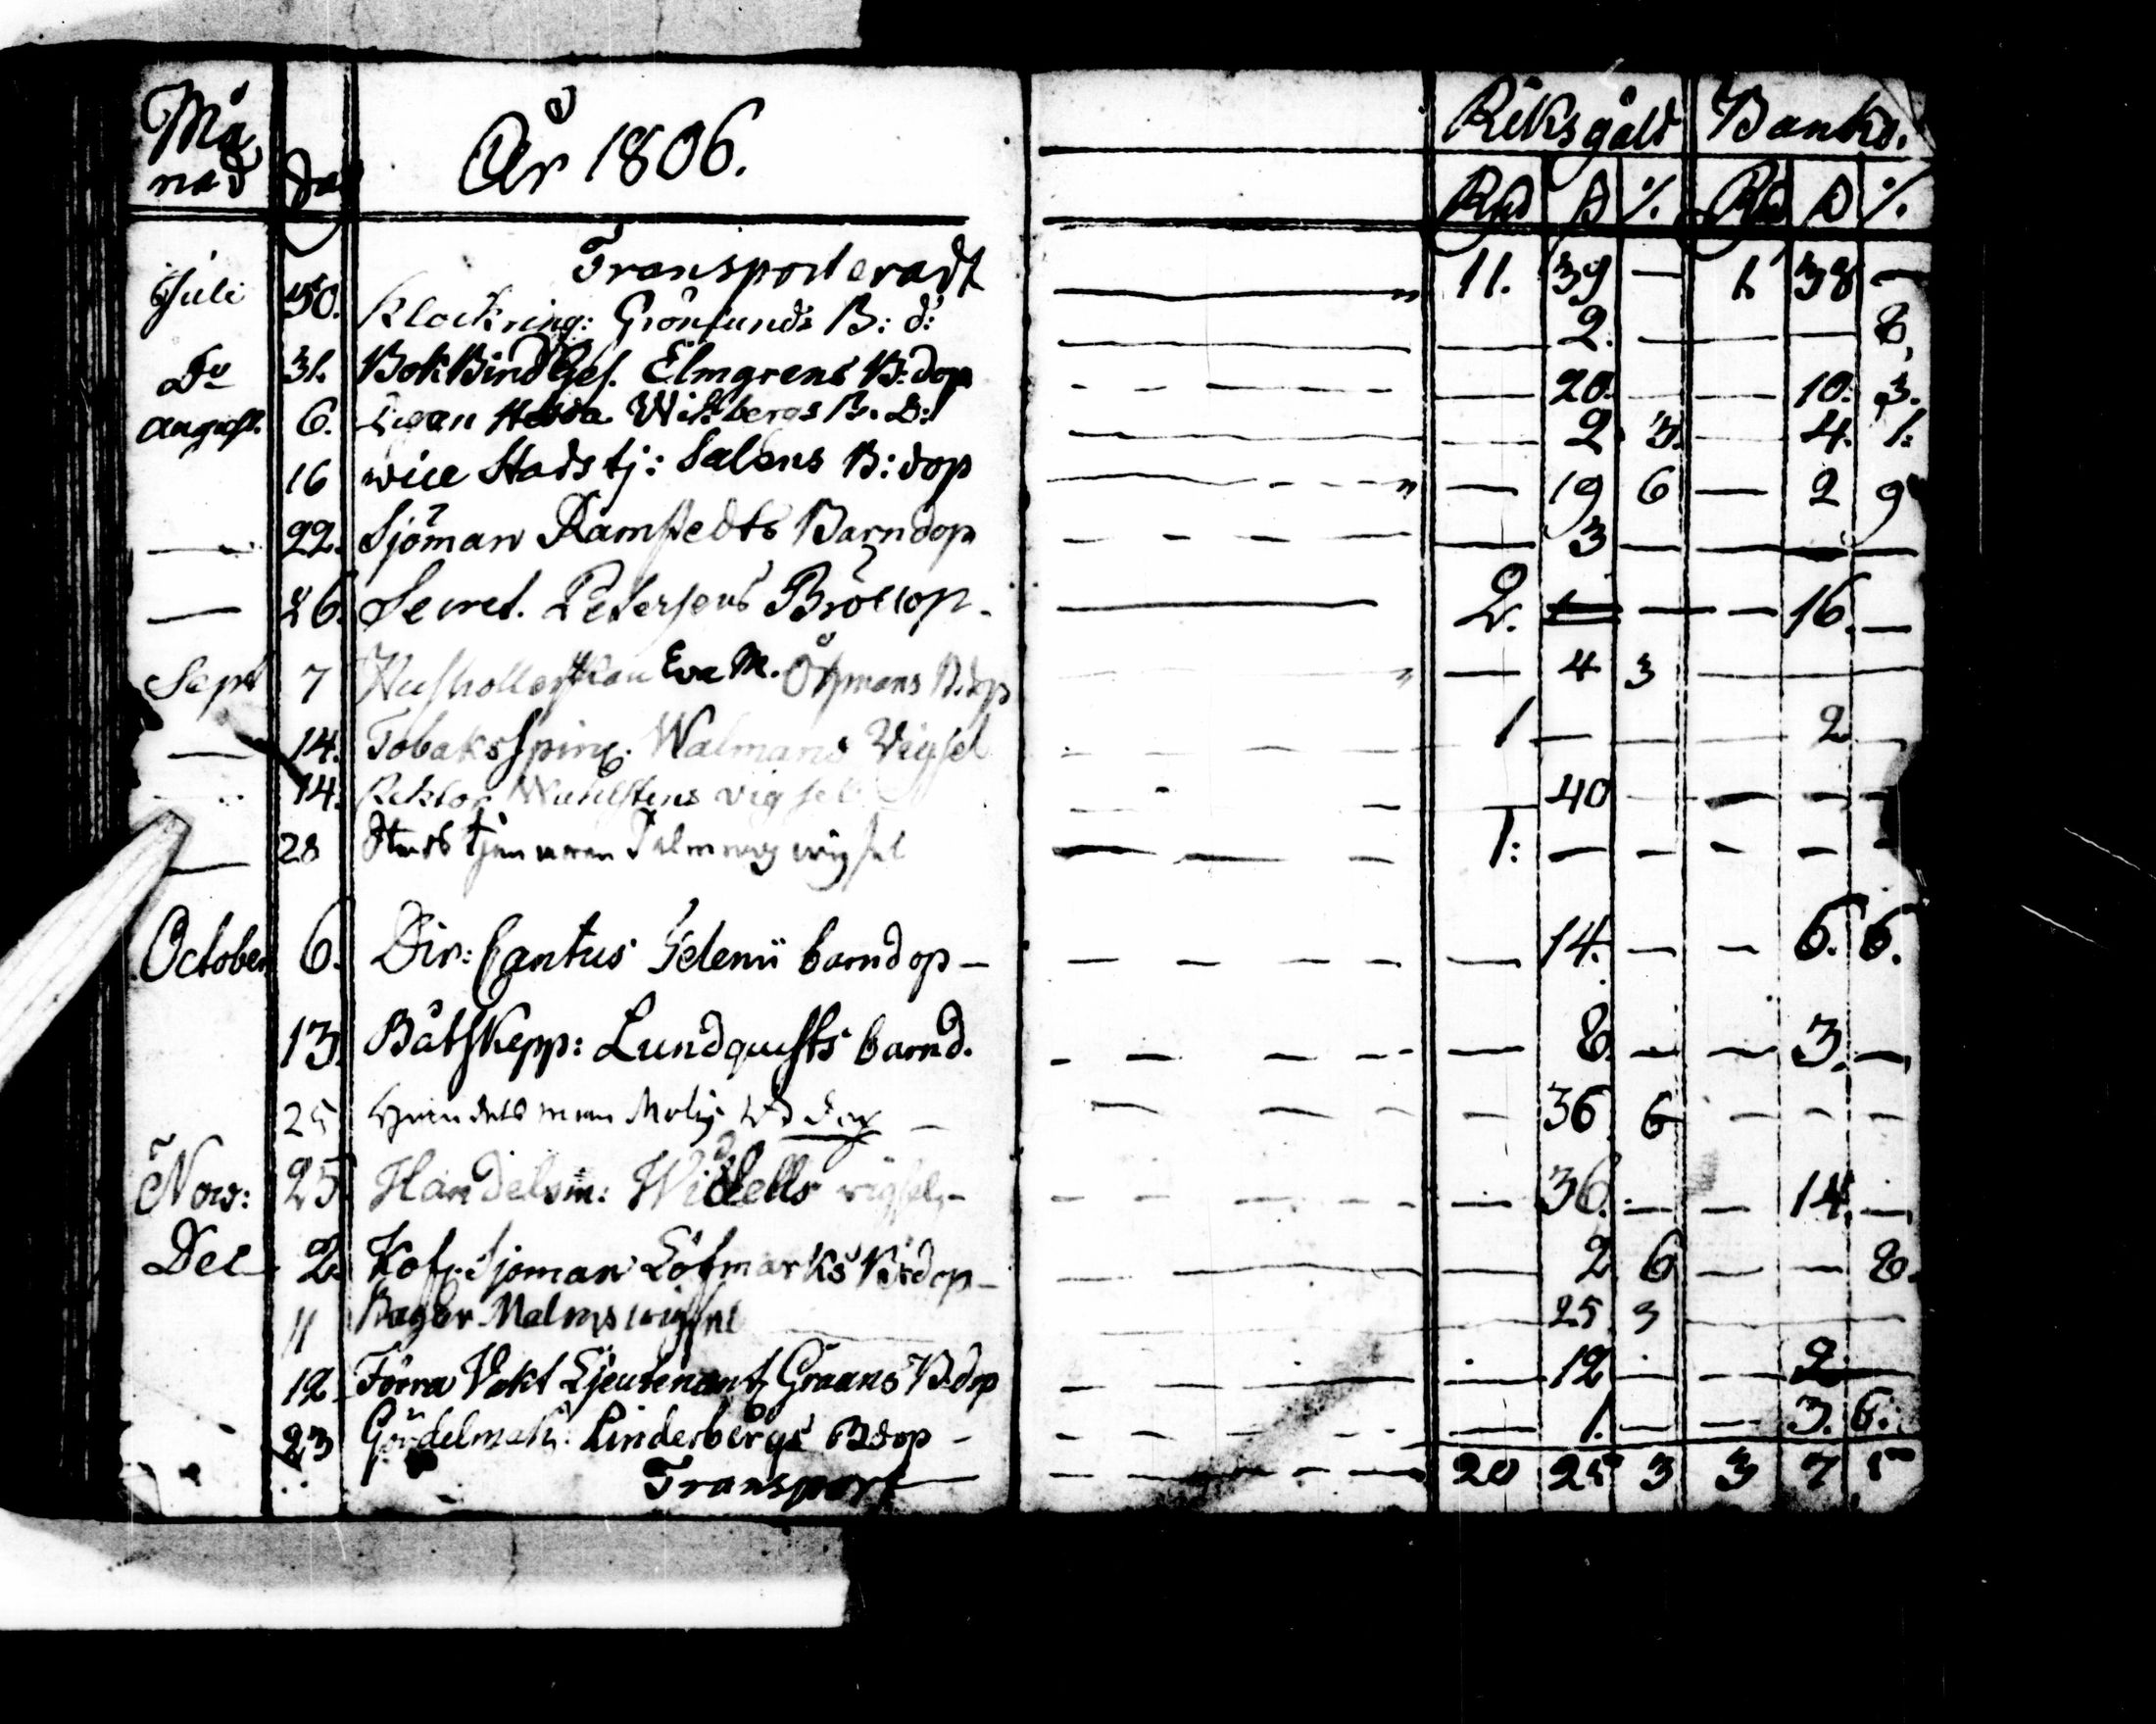 Månad Dag År 1806. Riksgäld Banko.
Rd ß %. Rd ß %.
Transporteradt 11. 39 — 1. 38 —
Juli 30. Klockring: Grönlunds B: d: — 2. — — — 8.
Do 31. BokBindGes. Elmgrens B:dop — 20. — — 10. 3.
August. 6. Pigan Wikbergs B. D: — 2. 3. — 4. 1.
16 wice Stadstj: Salens B:dop — 19 6 — 2 9
— 22. Sjöman Ramstedts Barndop — 3 — — — —
— 26. Secret. Petersens Bröllop — 2. — — 16. —
Sept 7 Hushollerskan Eva M. Öhmans B.dop — 4 3
— 14. Tobaksspinn: Walmans Vigsel 1 — — — 2 —
14. Rektor Wahlstens vigsel — 40 — — — —
— 28 wigsel 1: — — — — —
October 6. Dir: Cantus Gelenii barndop — — 14. — — 6. 6.
13. Båtskepp: Lundqvists barnd. — 8. — — 3. —
25 — 36 6 — — —
Nov: 25 Handelsm: Widells vigsel — — 36. — — 14. —
Dec 2. Kof. Sjöman Löfmarks B:dop — — 2 6 — — 8.
11 Bagar Malms wigsel 25 3
12 Förra Vakt Ljeutenant Graans B.dop — 12 — — 2 —
23 Gördelmak: Linderbergs Bdop — — 1. — — 3. 6:
Transport — 20 25 3 3 7 5